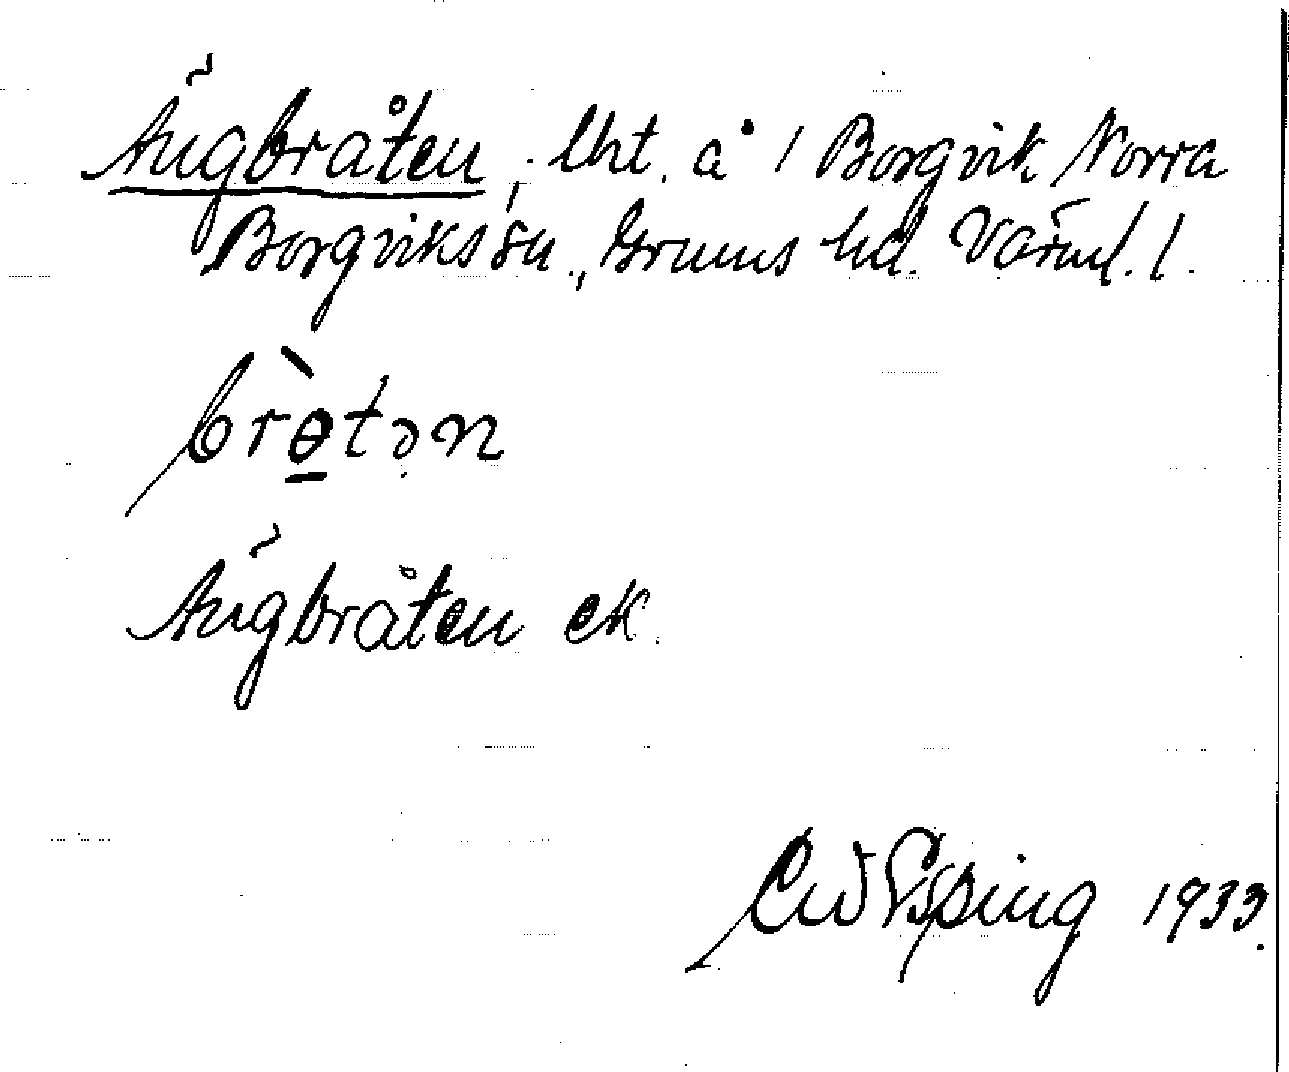 Ängbråten, lht. å 1 Borgvik Norra
Borgviks sn., Grums hd. Värml. l.
brɵ̀tən
Ängbråten ek.
1933.